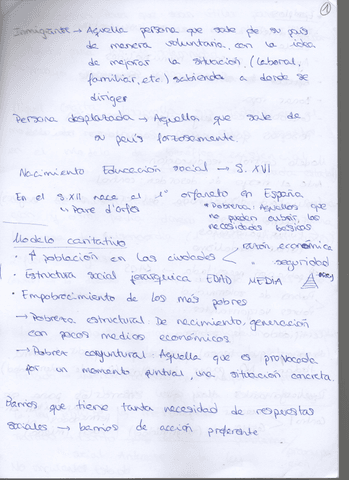 1
Inmigrante → Aquella persona que sale de su país
de manera voluntaria, con la idea
de mejorar la situación, (laboral,
familiar, etc) sabiendo a donde se
dirige
Persona desplazada → Aquella que sale de
su país forzosamente
Nacimiento Educación social → S. XVI
En el S.XII nace el 1º orfanato en España
" Pare d'órfens
* Pobreza: Aquellos que
no pueden cubrir las
necesidades básicas
Modelo caritativo
• ↑ población en las ciudades < razón económica
seguridad
• Estructura social jerárquica EDAD MEDIA
• Empobrecimiento de los más pobres
→ Pobreza estructural: De nacimiento, generación
con pocos medios económicos
→ Pobreza coyuntural: Aquella que es provocada
por un momento puntual, una situación concreta.
Barrios que tiene tanta necesidad de respuestas
sociales → barrios de acción preferente